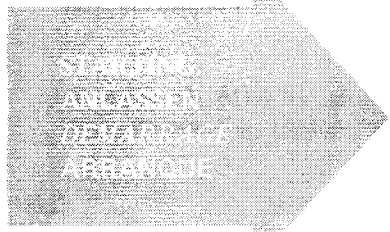 STARTING
ANLASSEN
DEMARRAGE
ARRANQUE